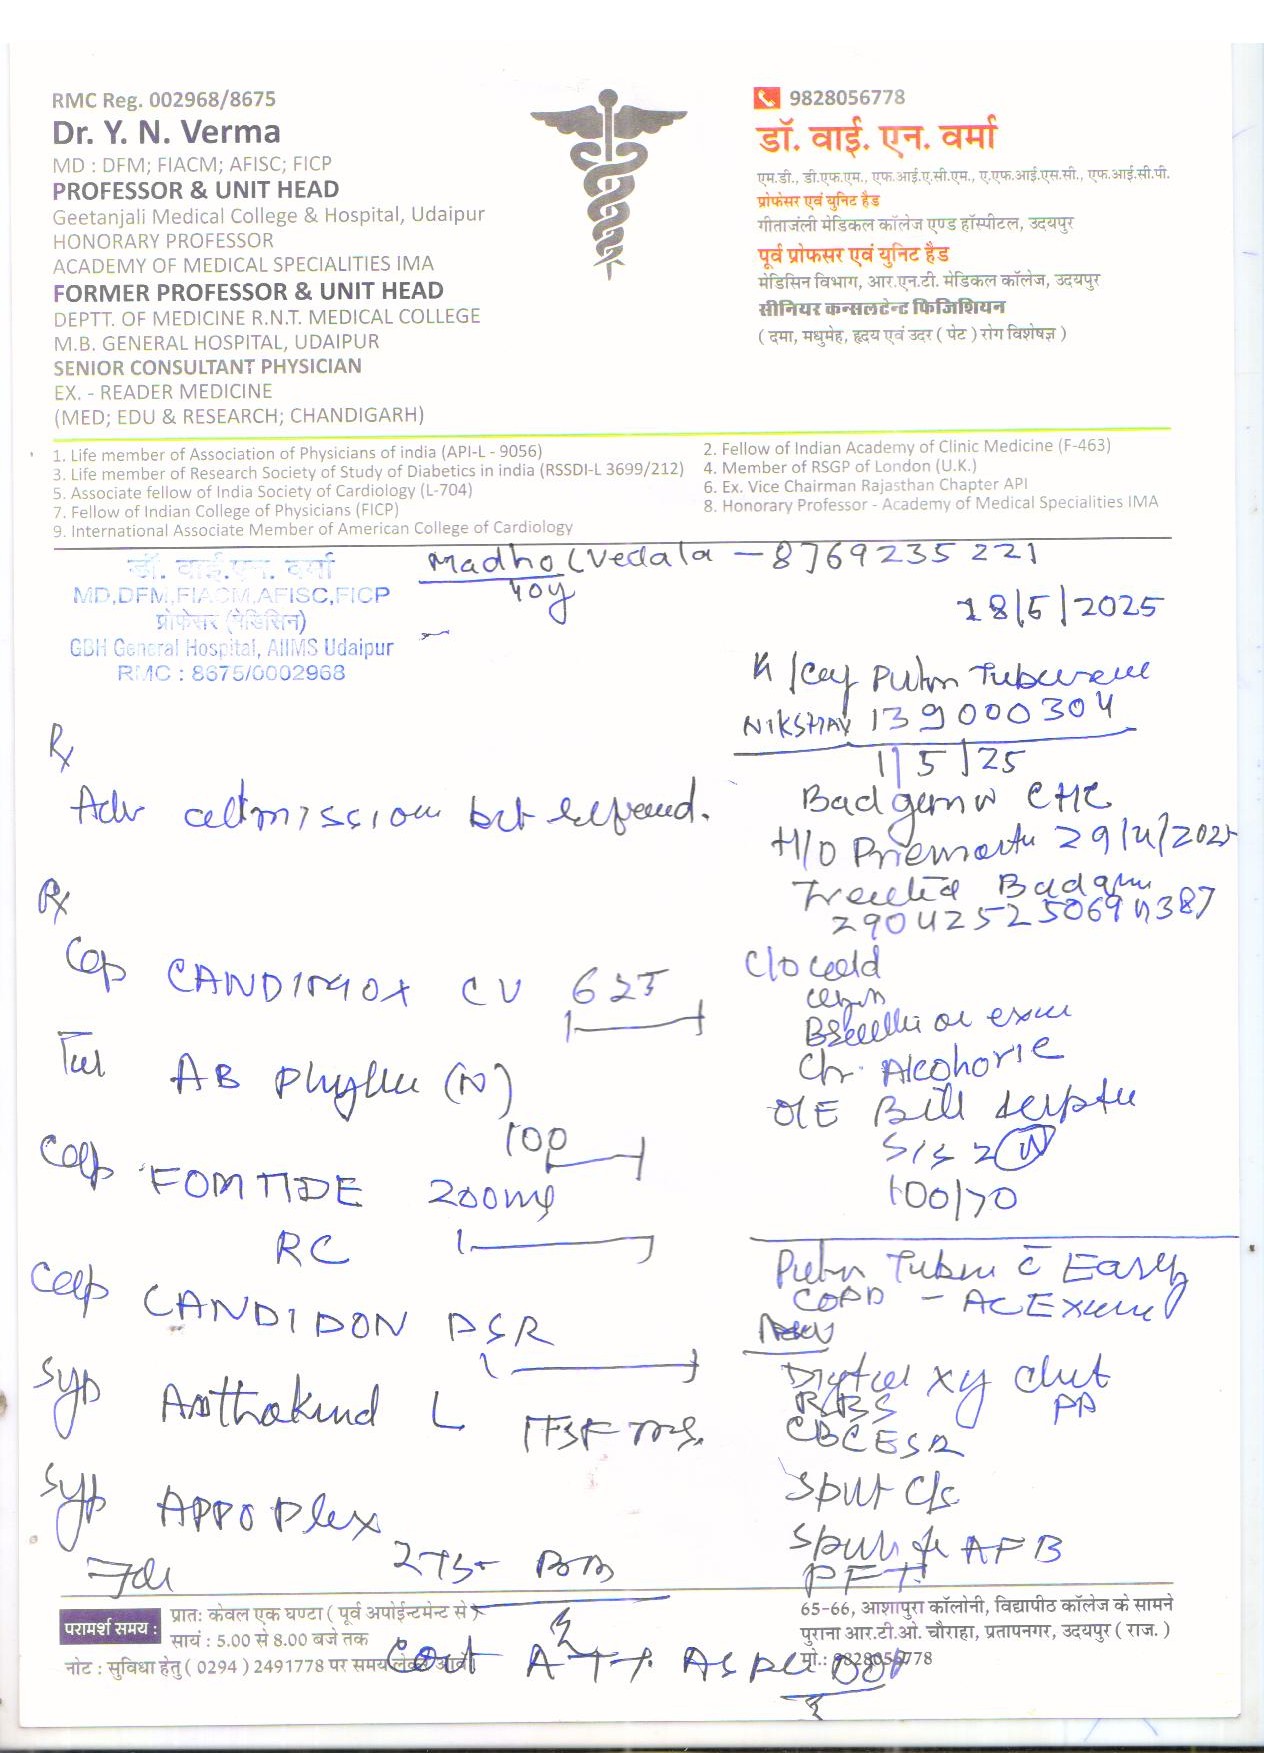 RMC Reg. 002968/8675
Dr. Y. N. Verma
MD : DFM; FIACM; AFISC; FICP
PROFESSOR & UNIT HEAD
Geetanjali Medical College & Hospital, Udaipur
HONORARY PROFESSOR
ACADEMY OF MEDICAL SPECIALITIES IMA
FORMER PROFESSOR & UNIT HEAD
DEPTT. OF MEDICINE R.N.T. MEDICAL COLLEGE
M.B. GENERAL HOSPITAL, UDAIPUR
SENIOR CONSULTANT PHYSICIAN
EX. - READER MEDICINE
(MED; EDU & RESEARCH; CHANDIGARH)
9828056778
डॉ. वाई. एन. वर्मा
एम.डी., डी.एफ.एम., एफ.आई.ए.सी.एम., ए.एफ.आई.एस.सी., एफ.आई.सी.पी.
प्रोफेसर एवं युनिट हैड
गीताजंली मेडिकल कॉलेज एण्ड हॉस्पीटल, उदयपुर
पूर्व प्रोफसर एवं युनिट हैड
मेडिसिन विभाग, आर.एन.टी. मेडिकल कॉलेज, उदयपुर
सीनियर कन्सलटेन्ट फिजिशियन
( दमा, मधुमेह, हृदय एवं उदर ( पेट ) रोग विशेषज्ञ )
1. Life member of Association of Physicians of india (API-L - 9056)
2. Fellow of Indian Academy of Clinic Medicine (F-463)
3. Life member of Research Society of Study of Diabetics in india (RSSDI-L 3699/212)
4. Member of RSGP of London (U.K.)
5. Associate fellow of India Society of Cardiology (L-704)
6. Ex. Vice Chairman Rajasthan Chapter API
7. Fellow of Indian College of Physicians (FICP)
8. Honorary Professor - Academy of Medical Specialities IMA
9. International Associate Member of American College of Cardiology
डॉ. वाई.एन. वर्मा
MD,DFM,FIACM,AFISC,FICP
प्रोफेसर (मेडिसिन)
GBH General Hospital, AIIMS Udaipur
RMC : 8675/0002968
Madho (Vedala - 8769235221
40y
18/5/2025
K/Cof Pulm
NIKSHAY 139000304
1/5/25
CHC
H/O 29/4/2025
Treated
Rx
Adv admission but refused.
Rx
Cap CANDIMOX CV 625
Tab AB Phyllin (N)
100
Cap FOMTIDE 200mg
RC
Cap CANDIDON DSR
Syp Asthakind L
Syp APPO Plex
2 TSF BD
C/O Cold
Ch. Alcoholic
O/E
100/70
Pulm Tuber c̄ Early
COPD - AC Exacer
Digital xray chest
PA
RBS
CBC ESR
Sput C/S
Sputum for AFB
PFT
Cont ATT.
परामर्श समय :
प्रातः केवल एक घण्टा ( पूर्व अपोईन्टमेन्ट से )
सायं : 5.00 से 8.00 बजे तक
नोट : सुविधा हेतु ( 0294 ) 2491778 पर समय लेकर आवें
65-66, आशापुरा कॉलोनी, विद्यापीठ कॉलेज के सामने
पुराना आर.टी.ओ. चौराहा, प्रतापनगर, उदयपुर ( राज. )
मो.: 9828056778